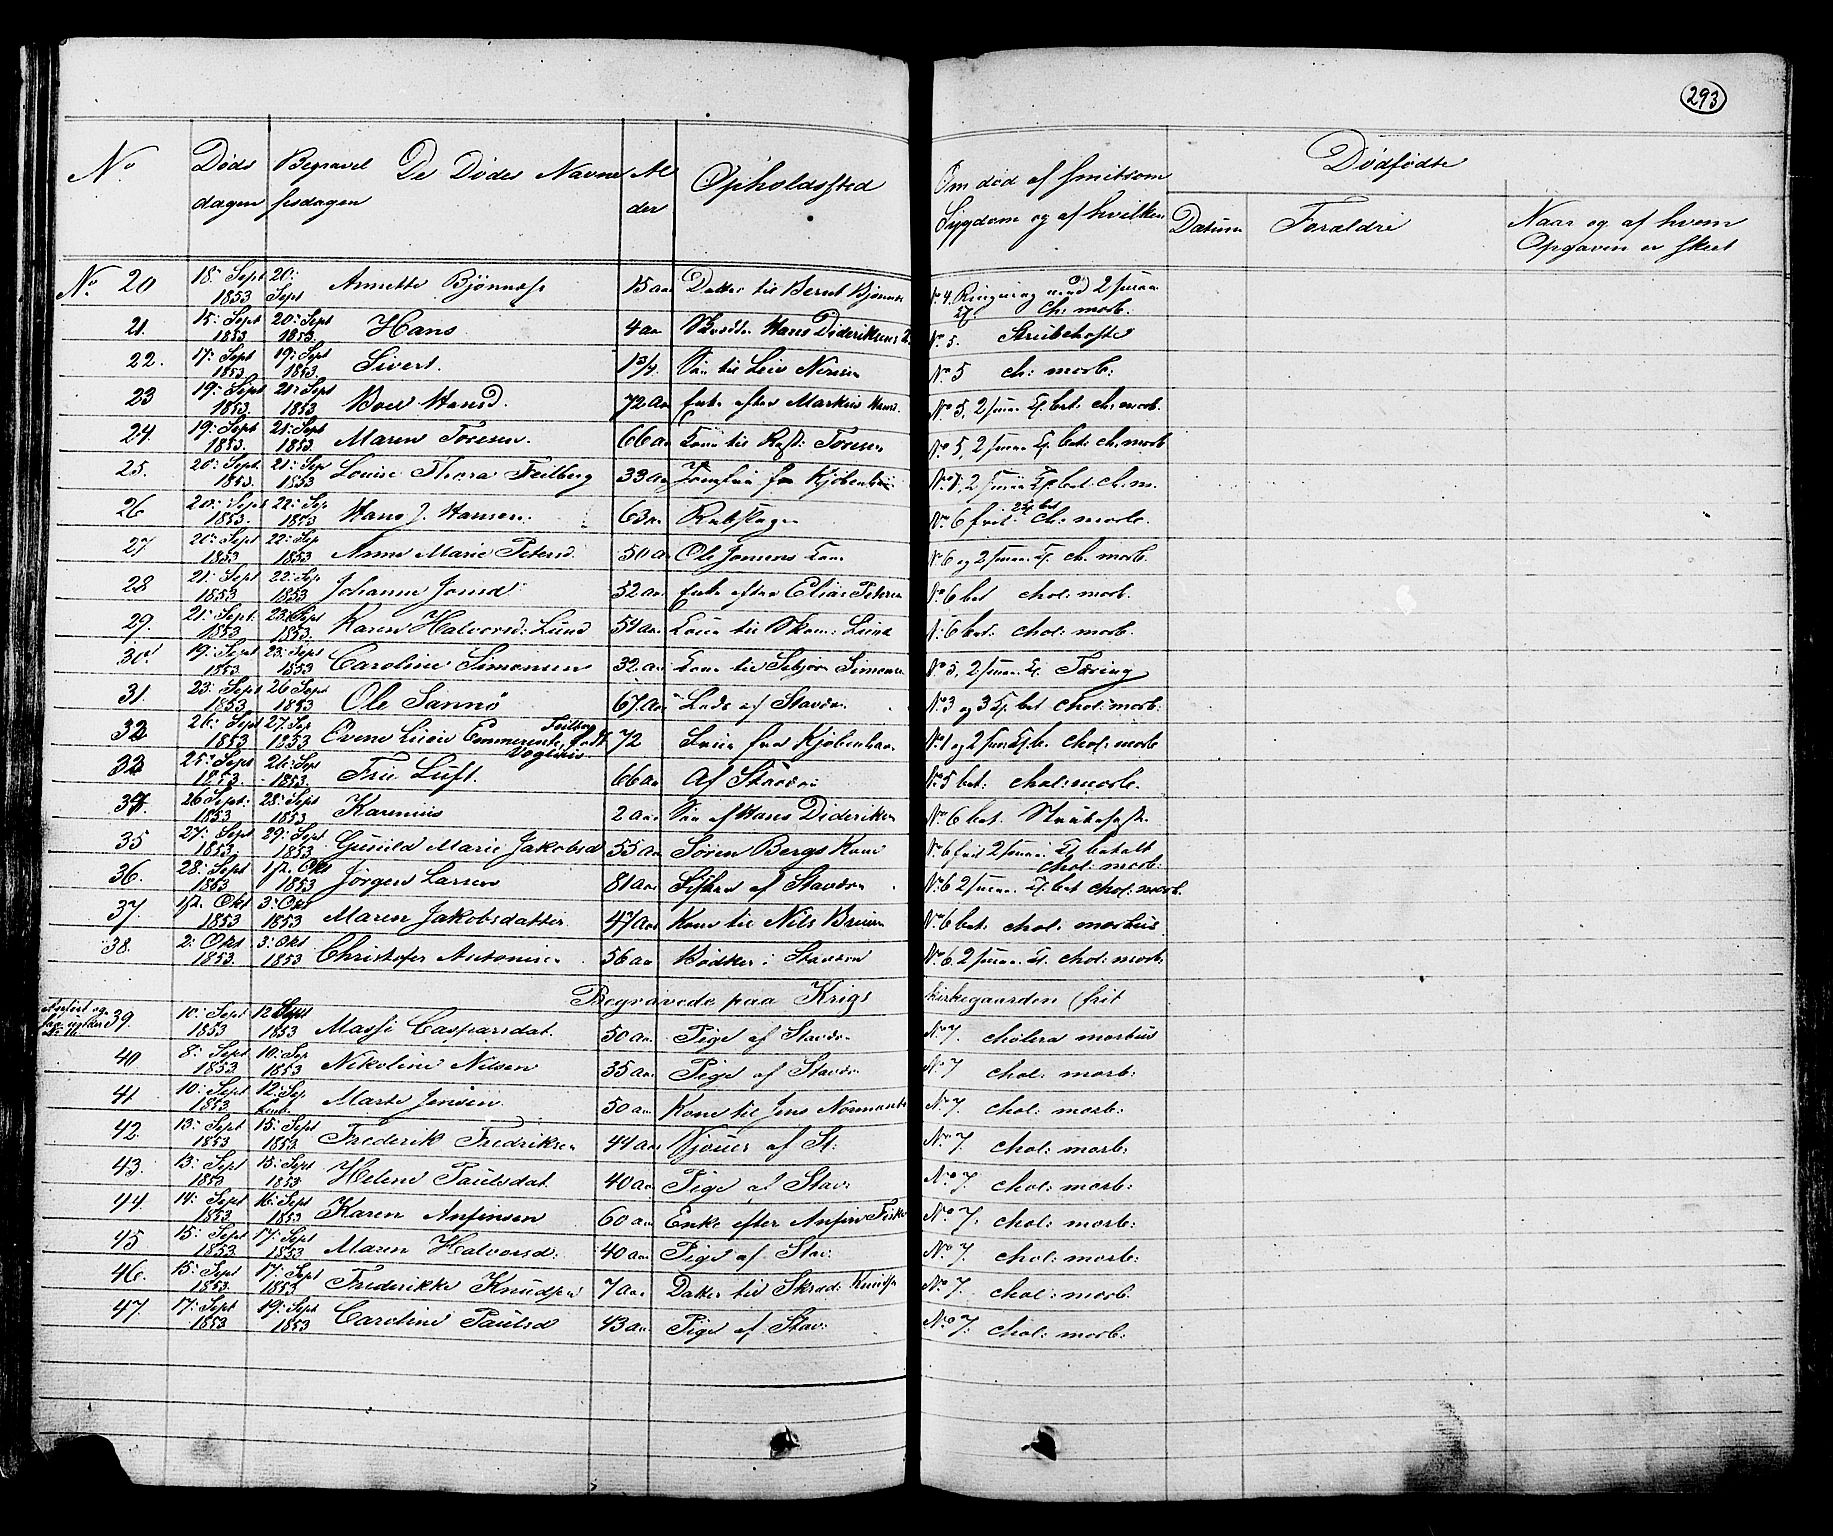 293
No Døds dagen Begravel sesdagen De Dødes Navne Al der Opholdssted Om død af smitsom Sygdom og af hvilken Dødfødte
Datum Forældre Naar og af hvem Opgaven er skeet
No 20 18: Sept 1853 20: Sept Annette Bjønness 15 aar Datter til Bernt Bjønnes No 4. Ringning med 2 chol: morb.
21. 15: Sept 1853 20: Sept 1853 Hans 4 aar Hans Dideriksens No 5. Strubehoste
22. 17: Sept 1853 19: Sept 1853 Sivert. 1 3/4. Søn til No 5 ch: morb:
23 19: Sept 1853 21: Sept 1853 Boel Hansd. 72 aar Enke efter Markus Hans. No 5, 2 bet. ch. morb.
24. 19: Sept 1853 21: Sept 1853 Maren Toresen. 66 aar Kone til Toresen No 5, 2 bet: ch. morb
25. 20: Sept. 1853 21: Sep 1853 Louise Thora Feilberg 33 aar Jomfru fra Kjøbenhavn 2 bet: ch. m.
26 20: Sept 1853. 22: Sep 1853 Hans J. Hansen. 63 aar Rebslager No 6 frit. ch: morb.
27 20: Sept 1853 22: Sep 1853 Anne Marie Petersd. 50 aar Ole Jonsens Kone No 6 og 2 ch. morb.
28 21: Sept 1853 22: Sep 1853 Johanne Jonsd: 52 aar Enke efter Elias Petersen No 6 bet chol: morb.
29. 21: Sept: 1853 23: Sept 1853. Karen Halvorsd: Lund 54 aar Kone til Lund No 6 bet: chol: morb.
30. 19: Sept 1853 23: Sept 1853 Caroline Simonsen 32. aar Kone til Simonsen No 5, 2 Tæring
31. 23: Sept 1853 26 Sept 1853 Ole Sannø 67 aar Lods af Stavern No 3 og 3 bet chol: morb.
32 26: Sept 1853 27: Sep 1853 Emmerente Feilberg født 72 Kjøbenhavn No 1 og 2 chol: morb
33 25: Sept 1853. 26: Sep 1853 Fru Luft. 66 aar Af Stavern No 5 bet: chol: morb.
34. 26 Sept: 1853 28: Sept 1853 Karenius 2 aar Søn af Hans Dideriksen No 6 bet.
35 27: Sept 1853. 29: Sept 1853 Gunild Marie Jakobsd 55 aar Søren Bergs Kone No 6 frit 2 betalt chol: morb.
36. 28: Sept 1853 1/2. Okt 1853 Jørgen Larsen 81 aar Fisker af Stavern No 6 2 bet chol: morb.
37. 1/2. Okt 1853 3: Okt 1853 Maren Jakobsdatter 47 aar Kone til Nils No 6 bet: chol: morbus.
38. 2: Okt 1853. 3: Okt 1853 Christofer Antonisen 56 aar Bødker i Stavern No 6. 2 chol: morb:
Begravede paa Krigs kirkegaarden (frit
39. 10: Sept 1853 12 Sept 1853 Massi Caspersdat. 50 aar Pige af Stavern No 7. cholera morbus
40 8: Sept 1853 10: Sep 1853 Nikoline Nilsen 35 aar Pige af Stavern No 7 chol: morb:
41 10: Sept 1853 12: Sep Marte Jensen. 50 aar Kone til Jens No 7. chol: morb:
42. 13: Sept 1853 15: Sept 1853 Frederik Fredriksen 44 aar af St: No 7. chol: morb:
43. 13: Sept 1853 15: Sept 1853 Helene Paulsdat 40 aar Pige af Stav: No 7 chol: morb:
44. 14: Sept 1853 16: Sept 1853 Karen Anfinsen 60 aar Enke efter Anfin No 7: chol: morb:
45 15: Sept 1853. 17: Sept 1853 Maren Halvorsd: 40 aar Pige af Stav: No 7. chol: morb:
46. 15: Sept 1853. 17: Sept 1853 Frederikke Knudsen 7 aar Datter til Skred: Knuds No 7. chol: morb.
47. 17: Sept 1853 19: Sept 1853 Caroline Paulsd 43 aar Pige af Stav: No 7: chol: morb: